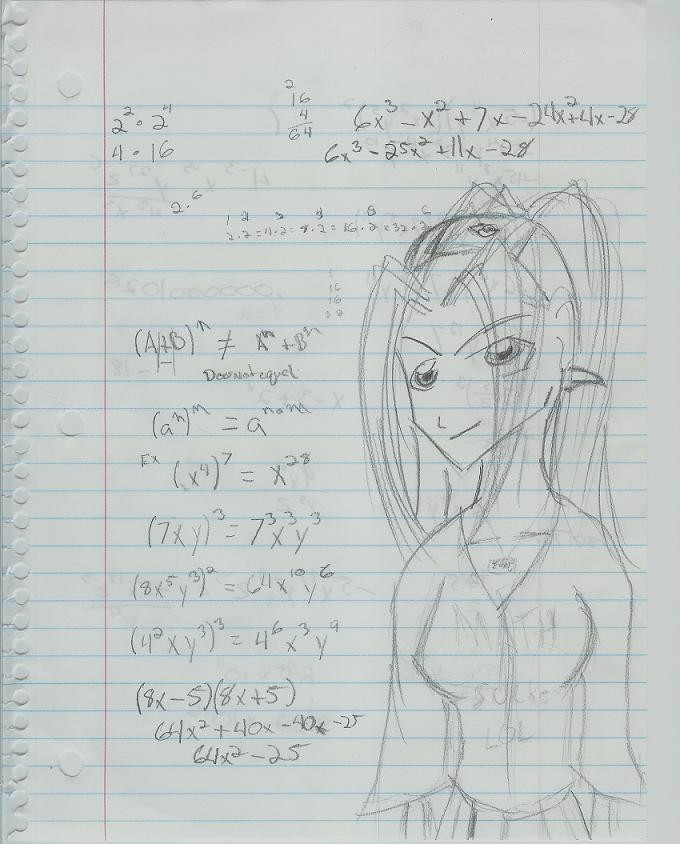 2² · 2⁴
4 · 16
2
16
4
64
6x³ - x² + 7x - 24x² + 4x - 28
6x³ - 25x² + 11x - 28
2·⁶
1 2 3 4 5 6
2·2=4·2=8·2=16·2=32·2
16
16
(A+B)ⁿ ≠ Aⁿ + Bⁿ
Does not equal
(aⁿ)ᵐ = aⁿ·ᵐ
Ex (x⁴)⁷ = x²⁸
(7xy)³ = 7³x³y³
(8x⁵y³)² = 64x¹⁰y⁶
(4²xy³)³ = 4⁶x³y⁹
(8x-5)(8x+5)
64x² + 40x - 40x - 25
64x² - 25